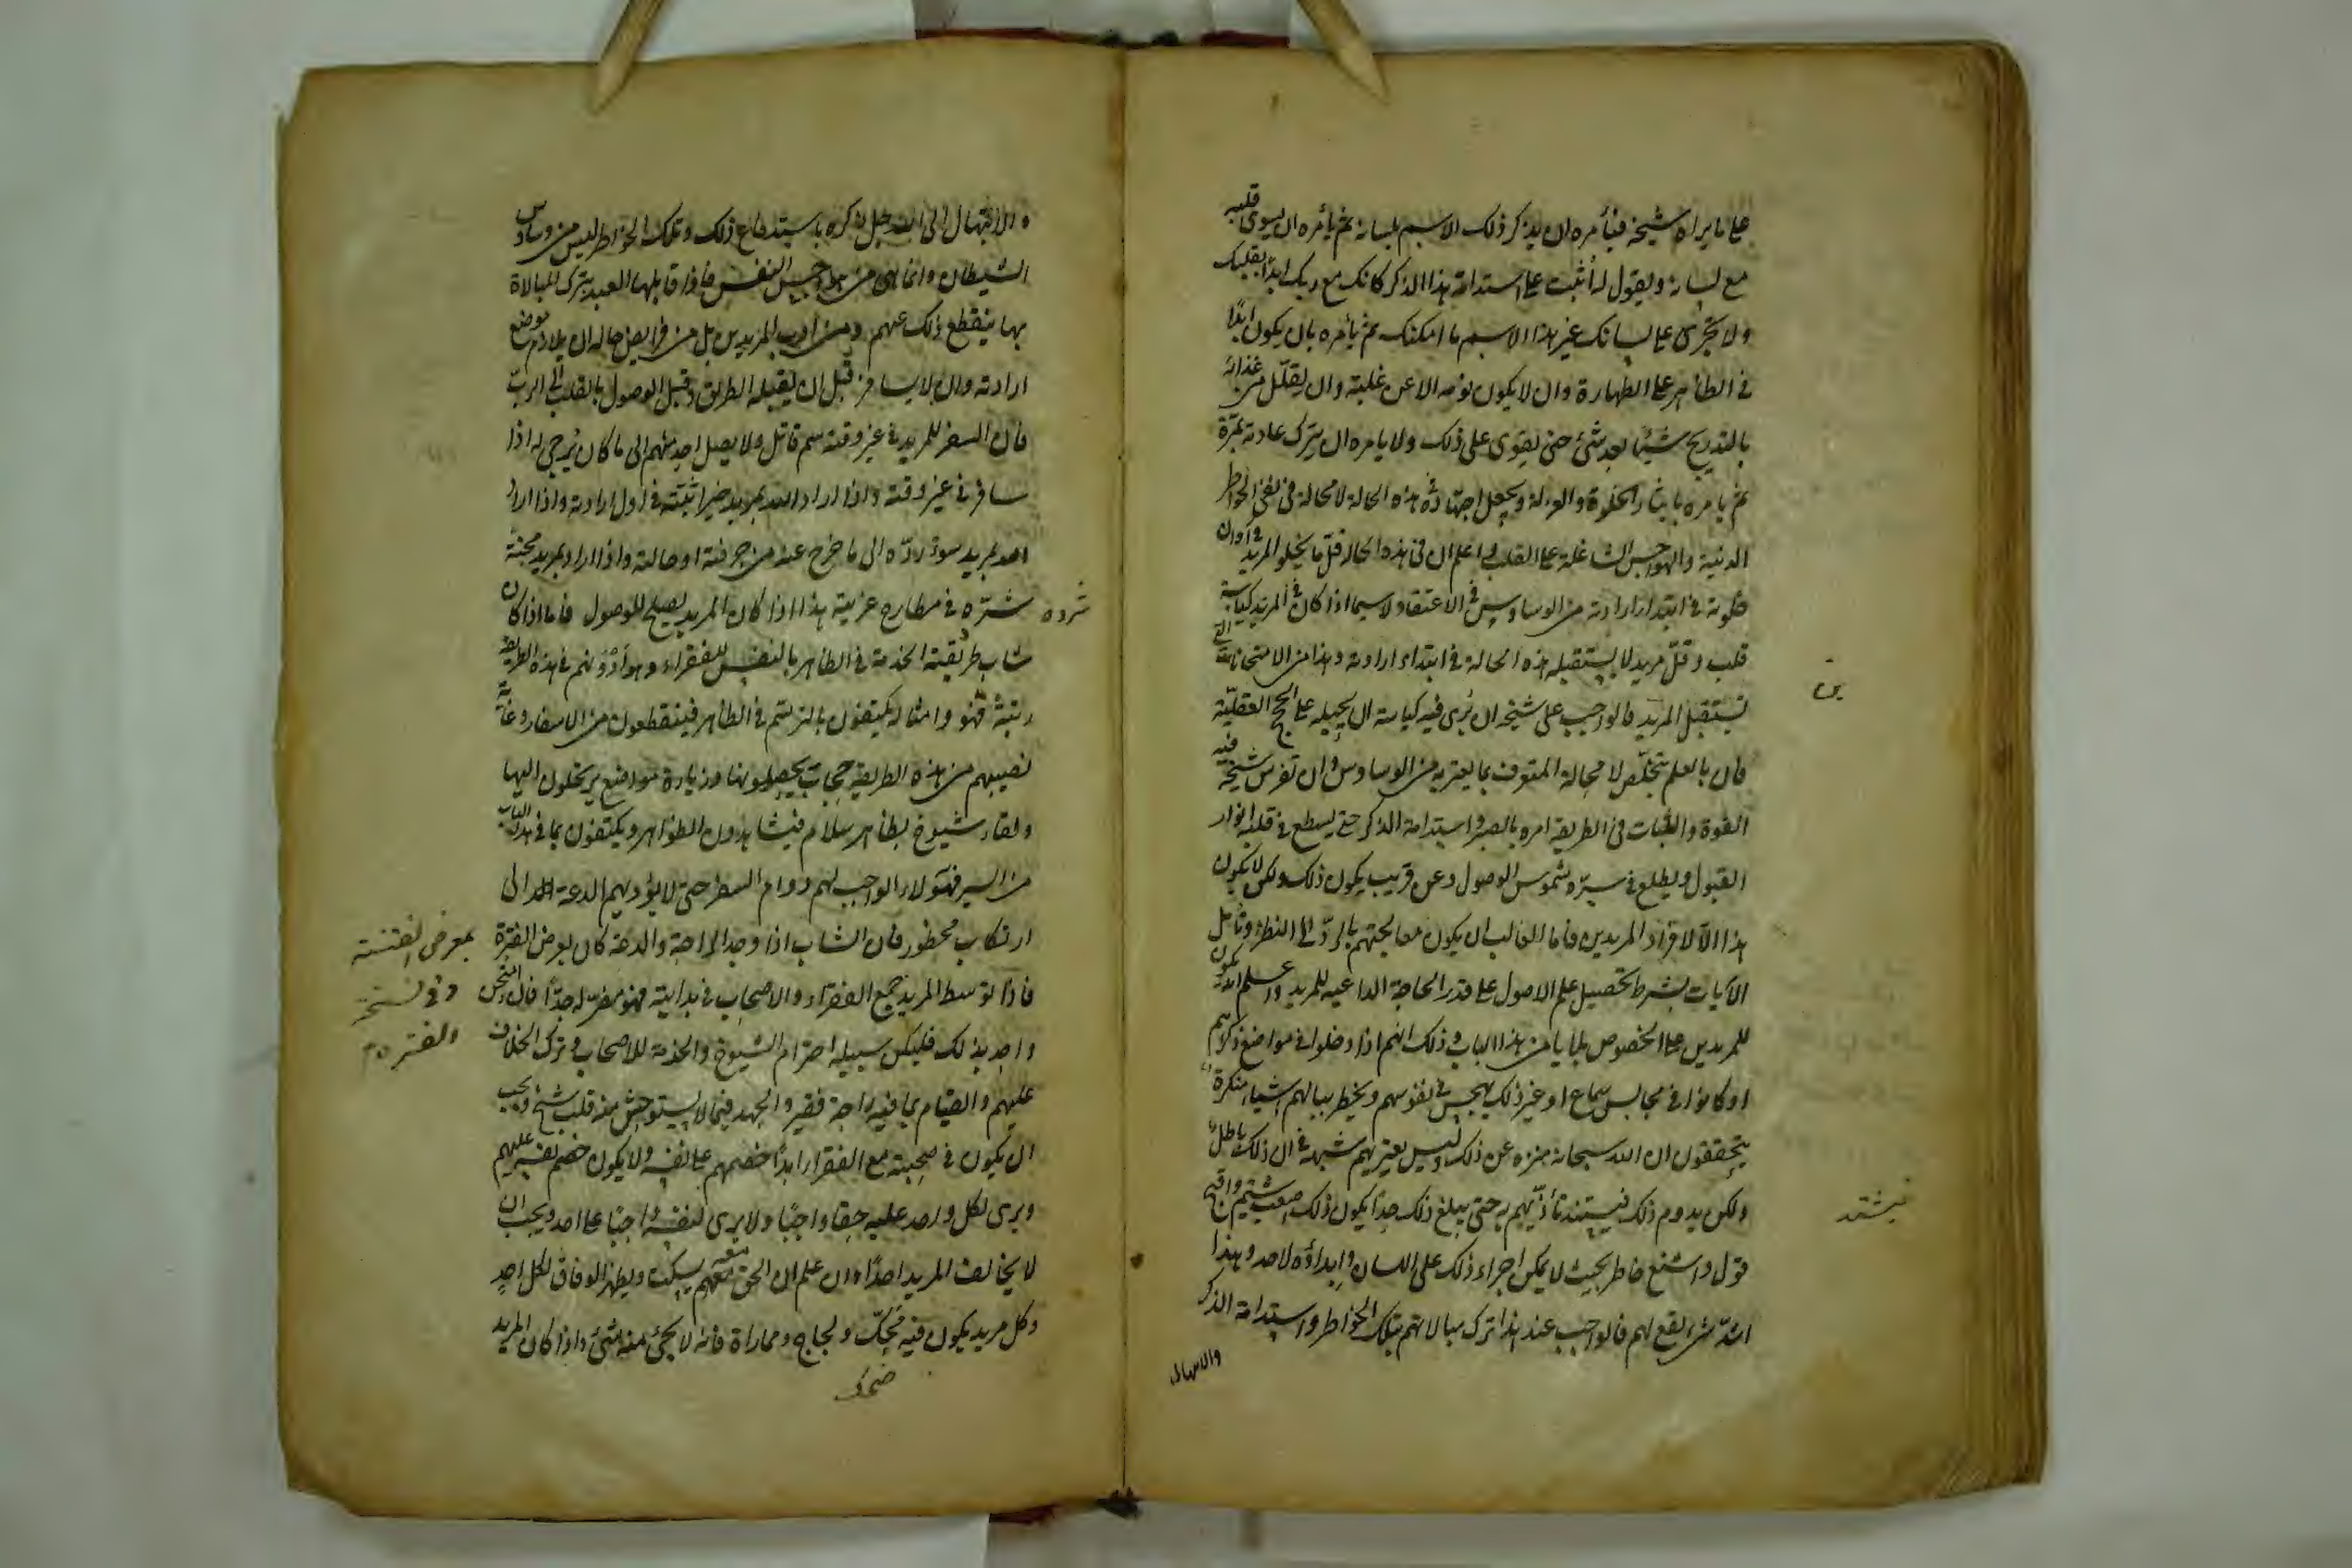 على ما يراه شيخه فيأمره ان يذكر ذلك الاسم بلسانه ثم يأمره ان يسوى قلبه
مع لسانه ويقول له اثبت على استدامة هذا الذكر كانك مع ربك ابدا بقلبك
ولا يجرى على لسانك غير هذا الاسم ما امكنك ثم يأمره بان يكون ابدًا
في الظاهر على الطهارة وان لا يكون نومه الا عن غلبة وان يقلّل من غذائه
بالتدريج شيئا بعد شئ حتى يقوى على ذلك ولا يامره ان يترك عادته بمرّة
ثم يامره بايثار الخلوة والعزلة ويجعل اجتهاده في هذه الحالة لا محالة في نفى الخواطر
الدنية والهواجس الشاغلة على القلب واعلم ان في هذه الحالة قلّ ما يخلو المريد في اوان
خلوته في ابتداء ارادته من الوساوس في الاعتقاد لاسيما اذا كان في المريد كياسة
قلب وقلّ مريد لا يستقبله هذه الحالة في ابتداء ارادته وهذا من الامتحانات التي
تستقبل المريد فالواجب على شيخه ان يرى فيه كياسة ان يحيله على الحجج العقليّة
فان بالعلم يتخلّص لا محالة المتعرف بما يعتريه من الوساوس وان تفرس شيخه فيه
القوة والثبات في الطريقة امره بالصبر واستدامة الذكر حتى يسطع في قلبه انوار
القبول ويطلع في سرّه شموس الوصول وعن قريب يكون ذلك ولكن لا يكون
هذا الّا لافراد المريدين فاما الغالب ان يكون معالجتهم بالردّ الى النظر وتأمل
الآيات بشرط تحصيل علم الاصول على قدر الحاجة الداعية للمريد واعلم انه يكون
للمريدين على الخصوص بلايا من هذا الباب وذلك انهم اذا دخلوا في مواضع ذكرهم
او كانوا في مجالس سماع او غير ذلك يهجس في نفوسهم ويخطر ببالهم اشياء منكرة
يتحققون ان الله سبحانه منزه عن ذلك وليس يعتريهم شبهة في ان ذلك باطل
ولكن يدوم ذلك فيشتد تأذّيهم به حتى يبلغ ذلك حدًا يكون ذلك اصعب شتم واقبح
قول واشنع خاطر بحيث لا يمكن اجراء ذلك على اللسان وابداؤه لاحد وهذا
اشدّ شئ يقع لهم فالواجب عند هذا ترك مبالاتهم بتلك الخواطر واستدامة الذكر
والابتهال
فيشتد
والابتهال الى الله جل ذكره باستدفاع ذلك وتلك الخواطر ليس من وساوس
الشيطان وانما هى من هواجس النفس فاذا قابلها العبد بترك المبالاة
بها ينقطع ذلك عنهم ومن ادب المريدين بل من فرايض حاله ان يلازم موضع
ارادته وان لا يسافر قبل ان يقبله الطريق وقبل الوصول بالقلب الى الربّ
فان السفر للمريد في غير وقته سم قاتل ولا يصل احد منهم الى ما كان يُرجى له اذا
سافر في غير وقته واذا اراد الله بمريد خيرا ثبّته في اول ارادته واذا اراد
الله بمريد سوءً ردّه الى ما خرج عنه من حرفته او حالته واذا اراد بمريد محنة
شرّده في مطارح غربته هذا اذا كان المريد يصلح للوصول فاما اذا كان
شرده
شاب طريقته الخدمة في الظاهر بالنفس للفقراء وهو ادونهم في هذه الطريقة
رتبة فهو وامثاله يكتفون بالترسّم في الظاهر فينقطعون من الاسفار وغاية
نصيبهم من هذه الطريقة حجاب يحصلونها وزيارة مواضع يرتحلون اليها
ولقاء شيوخ بظاهر سلام فيشاهدون الظواهر ويكتفون بما في هذا الباب
من السير فهؤلاء الواجب لهم دوام السفر حتى لا يؤديهم الدعة الى
ارتكاب محظور فان الشاب اذا وجد الراحة والدعة كان بعرض الفترة
بمعرض الفتنة
وفي نسخة
والفترة
فاذا توسط المريد جمع الفقراء والاصحاب في بدايته فهو مضرّ له جدًّا فان امتحن
واحد بذلك فليكن سبيله احترام الشيوخ والخدمة للاصحاب وترك الخلاف
عليهم والقيام بما فيه راحة فقير والجهد فيما لا يستوحش منه قلب شيخ ويجب
ان يكون في صحبته مع الفقراء ابدًا خصمهم على نفسه ولا يكون خصم نفسه عليهم
ويرى لكل واحد عليه حقا واجبًا ولا يرى لنفسه واجبًا على احد ويجب ان
لا يخالف المريد احدًا وان علم ان الحق معه يسكت ويظهر الوفاق لكل احد
وكل مريد يكون فيه ضحك ولجاج ومماراة فانه لا يجئ منه شئ واذا كان المريد
ضحك